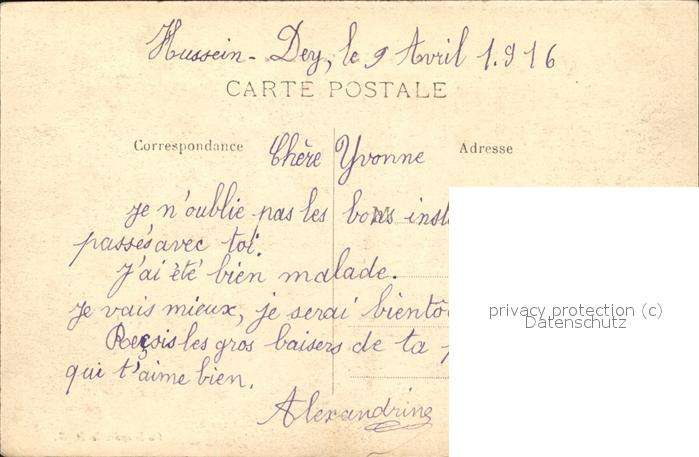 Hussein-Dey, le 9 Avril 1916
CARTE POSTALE
Correspondance Chère Yvonne Adresse
Je n'oublie pas les bons inst
passés avec toi.
J'ai été bien malade.
Je vais mieux, je serai bientô
privacy protection (c)
Datenschutz
Reçois les gros baisers de ta
qui t'aime bien.
Alexandrine